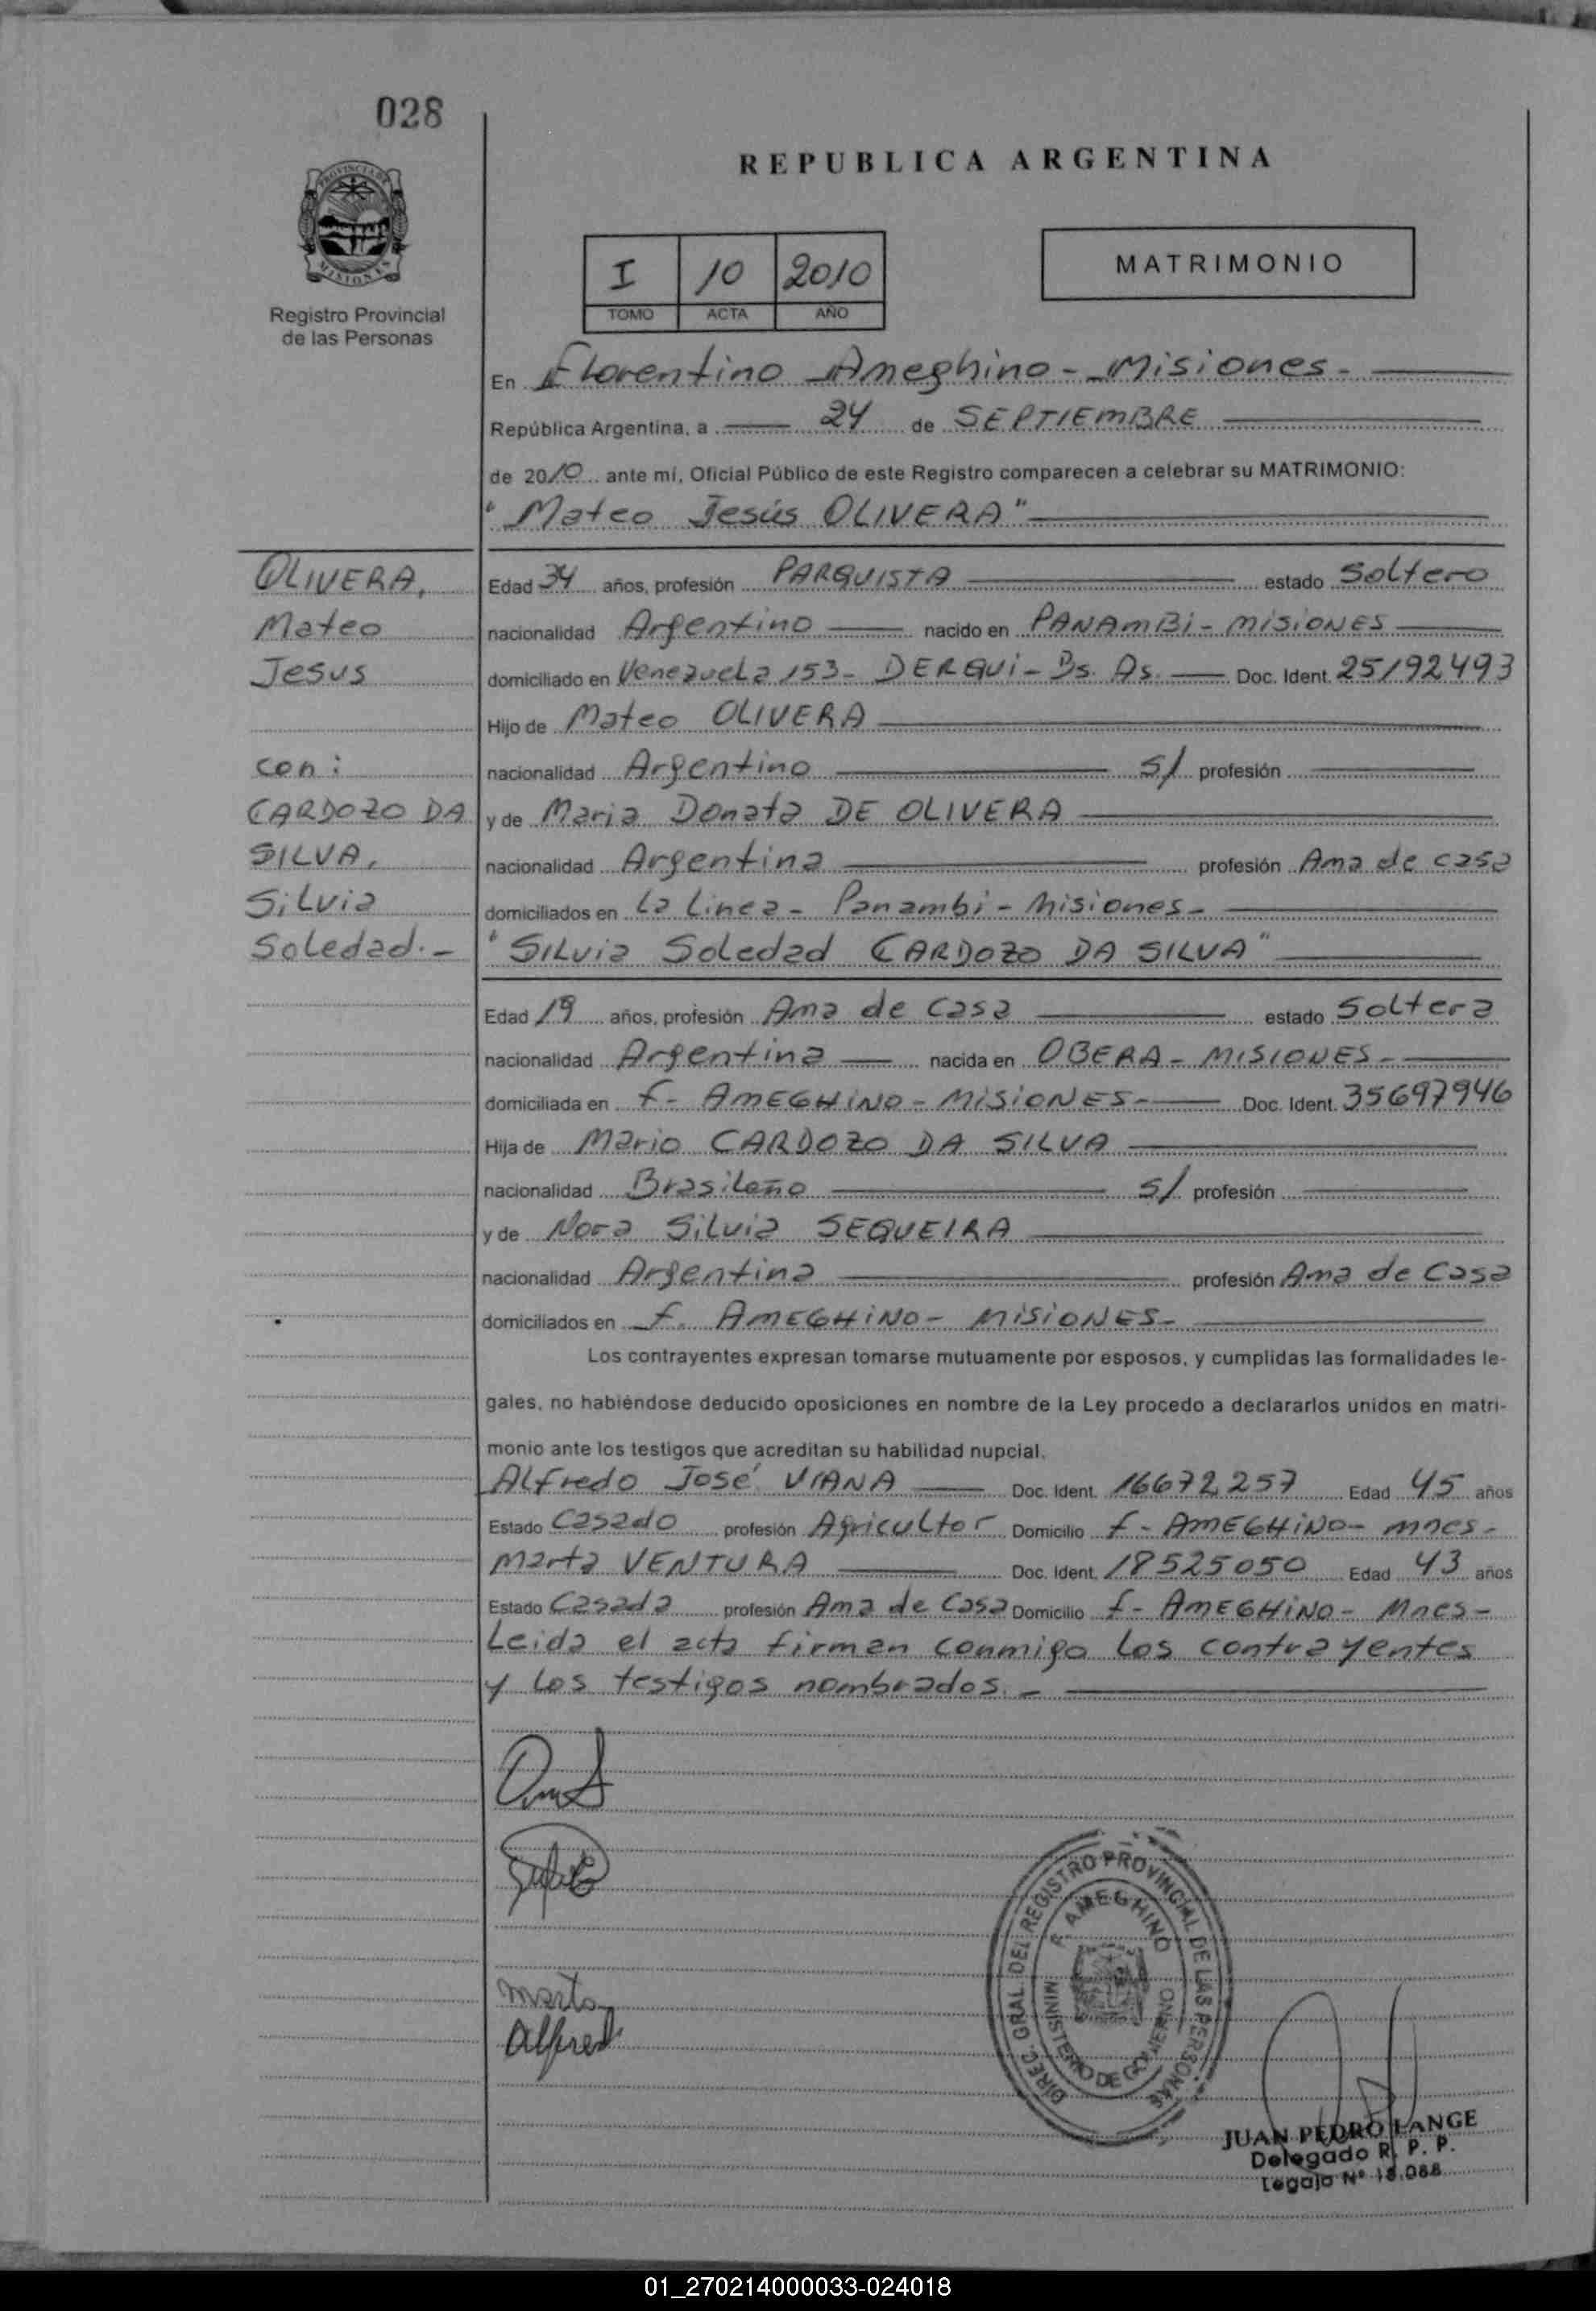 028
REPUBLICA ARGENTINA
PROVINCIA DE
MISIONES
Registro Provincial
de las Personas
I 10 2010
TOMO ACTA AÑO
MATRIMONIO
En Florentino Ameghino - Misiones -
República Argentina, a 24 de SEPTIEMBRE
de 2010 ante mí, Oficial Público de este Registro comparecen a celebrar su MATRIMONIO:
"Mateo Jesús OLIVERA"
OLIVERA,
Mateo
Jesus
con:
CARDOZO DA
SILVA,
Silvia
Soledad.-
Edad 34 años, profesión PARQUISTA estado Soltero
nacionalidad Argentino nacido en PANAMBi - MISIONES
domiciliado en Venezuela 153 - DERQUI - Bs. As. Doc. Ident. 25192493
Hijo de Mateo OLIVERA
nacionalidad Argentino S/ profesión
y de Maria Donata DE OLIVERA
nacionalidad Argentina profesión Ama de casa
domiciliados en La Linea - Panambi - Misiones -
"Silvia Soledad CARDOZO DA SILVA"
Edad 19 años, profesión Ama de casa estado Soltera
nacionalidad Argentina nacida en OBERA - MISIONES -
domiciliada en F - AMEGHINO - MISIONES - Doc. Ident. 35697946
Hija de Mario CARDOZO DA SILVA
nacionalidad Brasileño S/ profesión
y de Nora Silvia SEQUEIRA
nacionalidad Argentina profesión Ama de Casa
domiciliados en F. AMEGHINO - MISIONES -
Los contrayentes expresan tomarse mutuamente por esposos, y cumplidas las formalidades le-
gales, no habiéndose deducido oposiciones en nombre de la Ley procedo a declararlos unidos en matri-
monio ante los testigos que acreditan su habilidad nupcial.
Alfredo José VIANA Doc. Ident. 16672257 Edad 45 años
Estado Casado profesión Agricultor Domicilio F - AMEGHINO - Mnes -
Marta VENTURA Doc. Ident. 18525050 Edad 43 años
Estado Casada profesión Ama de Casa Domicilio F - AMEGHINO - Mnes -
Leida el acta firman conmigo los contrayentes
y los testigos nombrados. -
Marta
Alfred
DIREC. GRAL. DEL REGISTRO PROVINCIAL DE LAS PERSONAS
F. AMEGHINO
MINISTERIO DE GOBIERNO
JUAN PEDRO LANGE
Delegado R. P. P.
Legajo Nº 18.088
01_270214000033-024018